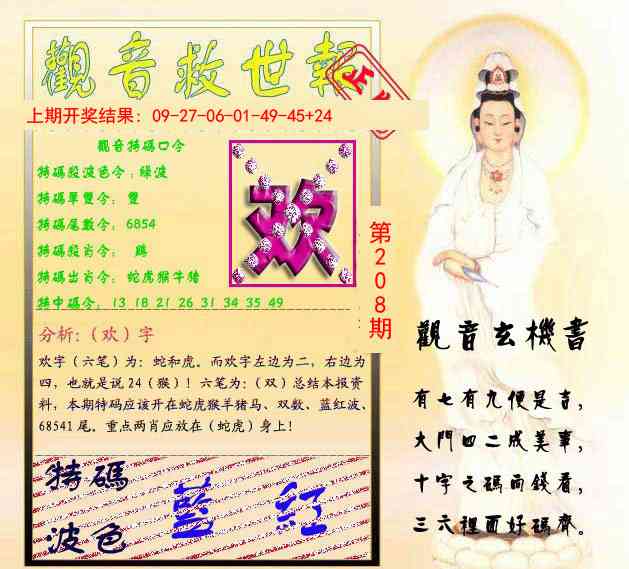 觀音救世報
上期开奖结果：09-27-06-01-49-45+24
觀音特碼口令
特碼段波色令：綠波
特碼單雙令：雙
特碼尾數令：6854
特碼段肖令：鷄
特碼出肖令：蛇虎猴牛猪
特中碼令：13 18 21 26 31 34 35 49
欢
第208期
分析：（欢）字
欢字（六笔）为：蛇和虎。而欢字左边为二，右边为
四，也就是说24（猴）！六笔为：（双）总结本报资
料，本期特码应该开在蛇虎猴羊猪马、双数、蓝红波、
68541尾。重点两肖应放在（蛇虎）身上！
特碼
波色
藍 紅
觀音玄機書
有七有九便是吉，
大門四二成美事，
十字之碼而錢看，
三六裡面好碼齊。